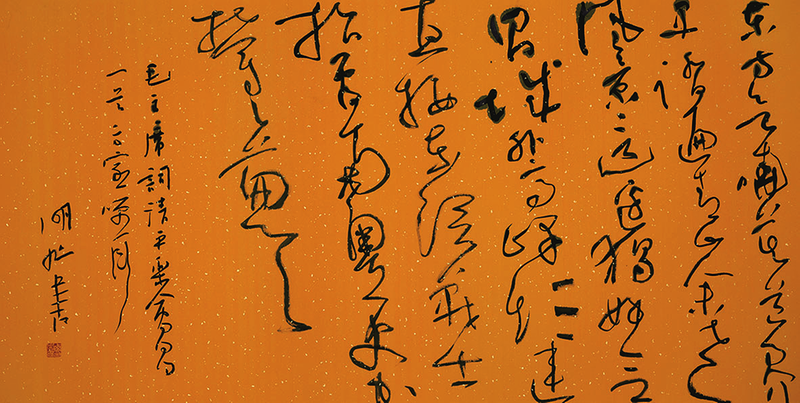 东方欲晓莫道君行
早踏遍青山人未老
风景这边独好会
昌城外高峰颠连
直接东溟战士
指看南粤更加
郁郁葱葱
毛主席詞清平樂會昌